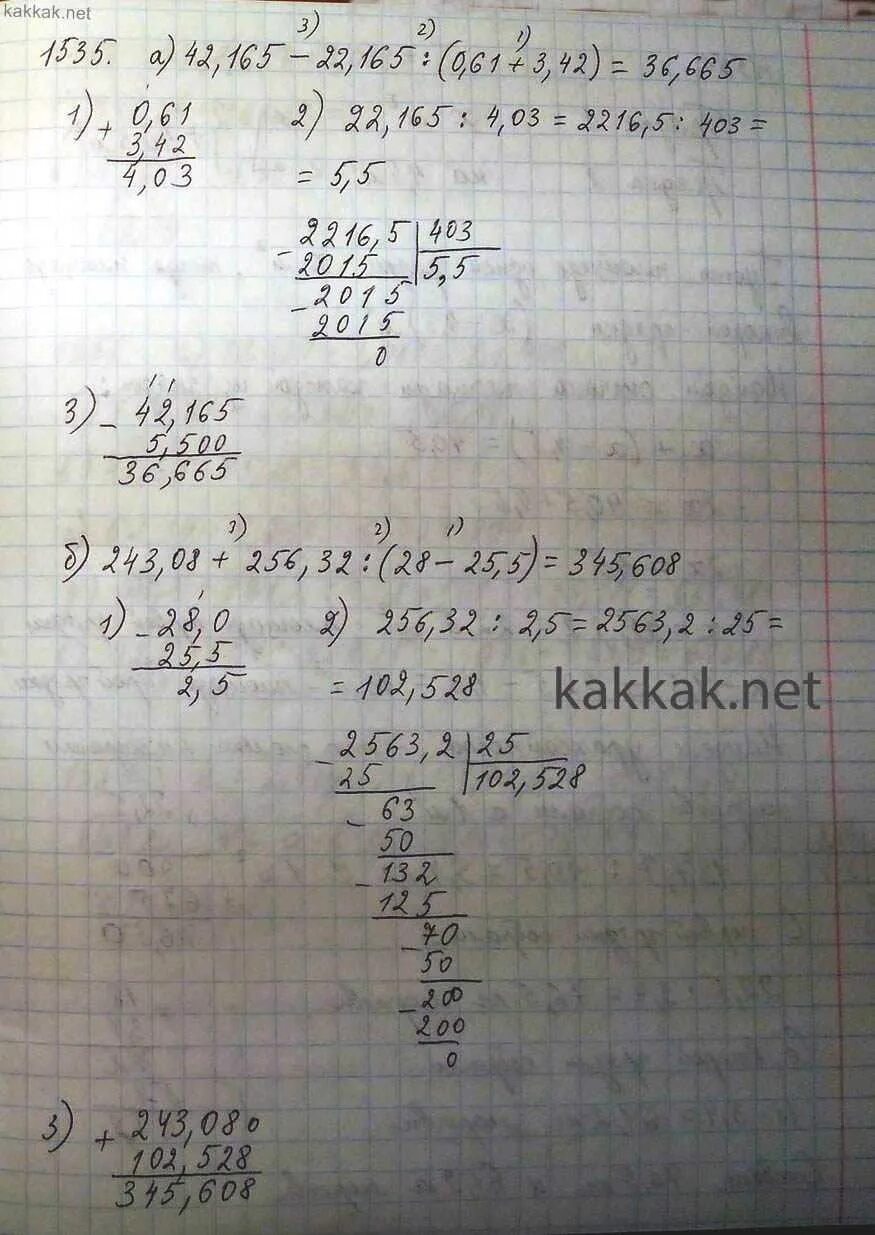 kakkak.net
3) 2) 1)
1535. а) 42,165 − 22,165 : (0,61 + 3,42) = 36,665
1) + 0,61
3,42
4,03
2) 22,165 : 4,03 = 2216,5 : 403 =
= 5,5
− 2216,5 403
2015 5,5
− 2015
2015
0
3) − 42,165
5,500
36,665
3) 2) 1)
б) 243,08 + 256,32 : (28 − 25,5) = 345,608
1) − 28,0
25,5
2,5
2) 256,32 : 2,5 = 2563,2 : 25 =
= 102,528
kakkak.net
− 2563,2 25
25 102,528
− 63
50
− 132
125
− 70
50
− 200
200
0
3) + 243,080
102,528
345,608